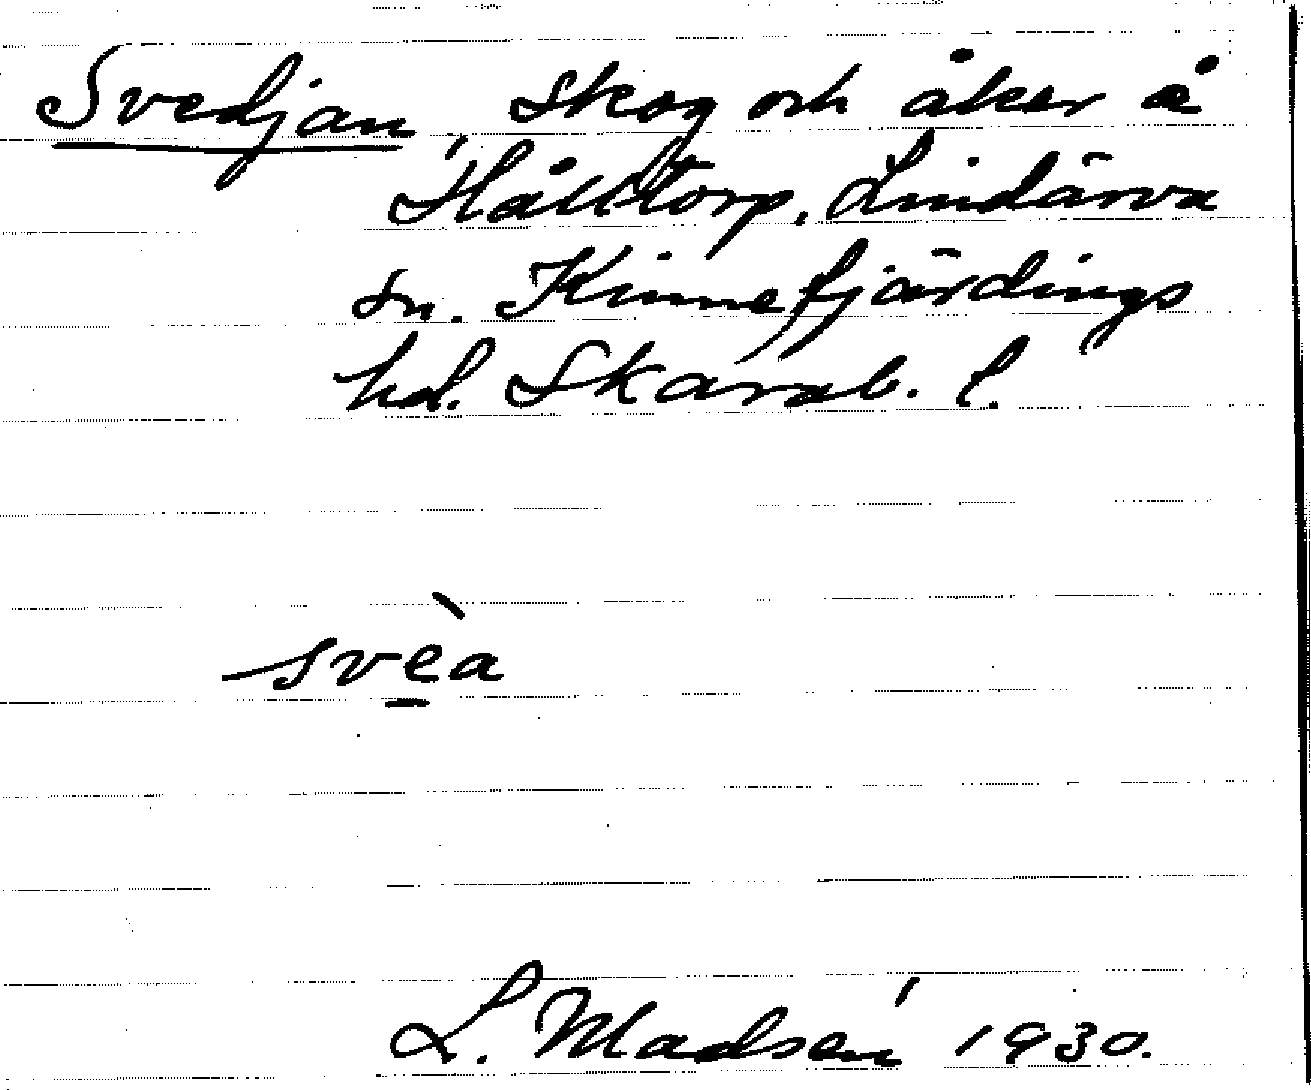 Svedjan, Skog och åker å
Hålltorp, Lindärva
sn. Kinnefjärdings
hd. Skarab. l.
svèa
L. Madsén 1930.